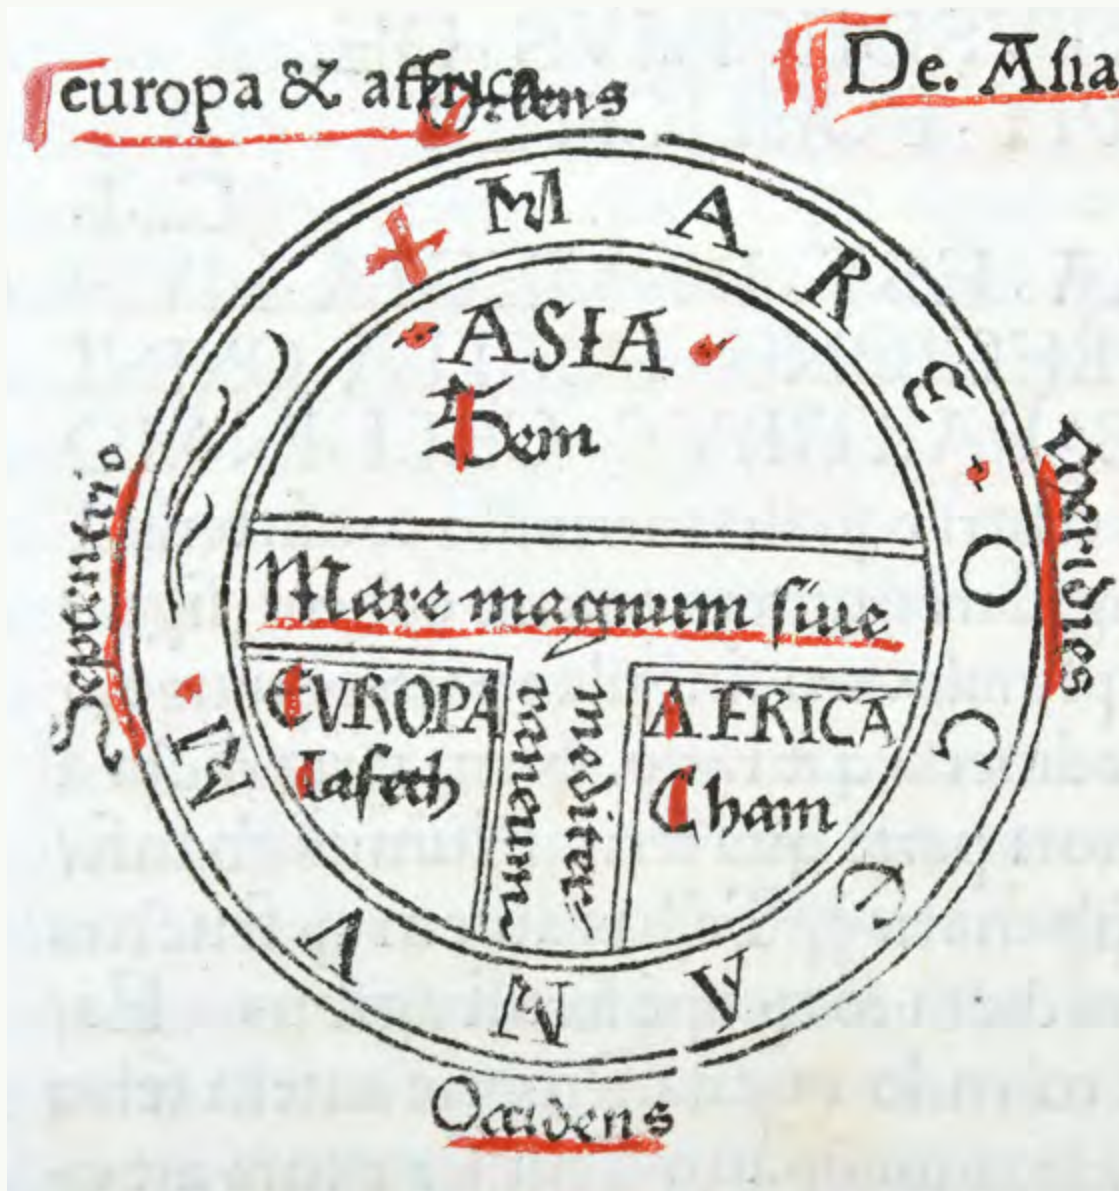 europa & affrica
De. Asia
Oriens
MARE OCEANUM
ASIA
Sem
Septentrio
Meridies
Mare magnum siue
mediter
raneum
EVROPA
Iafeth
AFRICA
Cham
Occidens